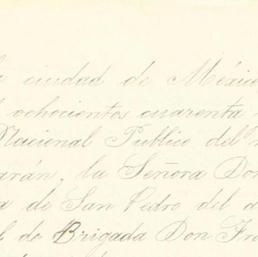 ciudad de México
ochocientos cuarenta
Nacional Publico del
arán, la Señora Don
a de San Pedro del
de Brigada Don Fra